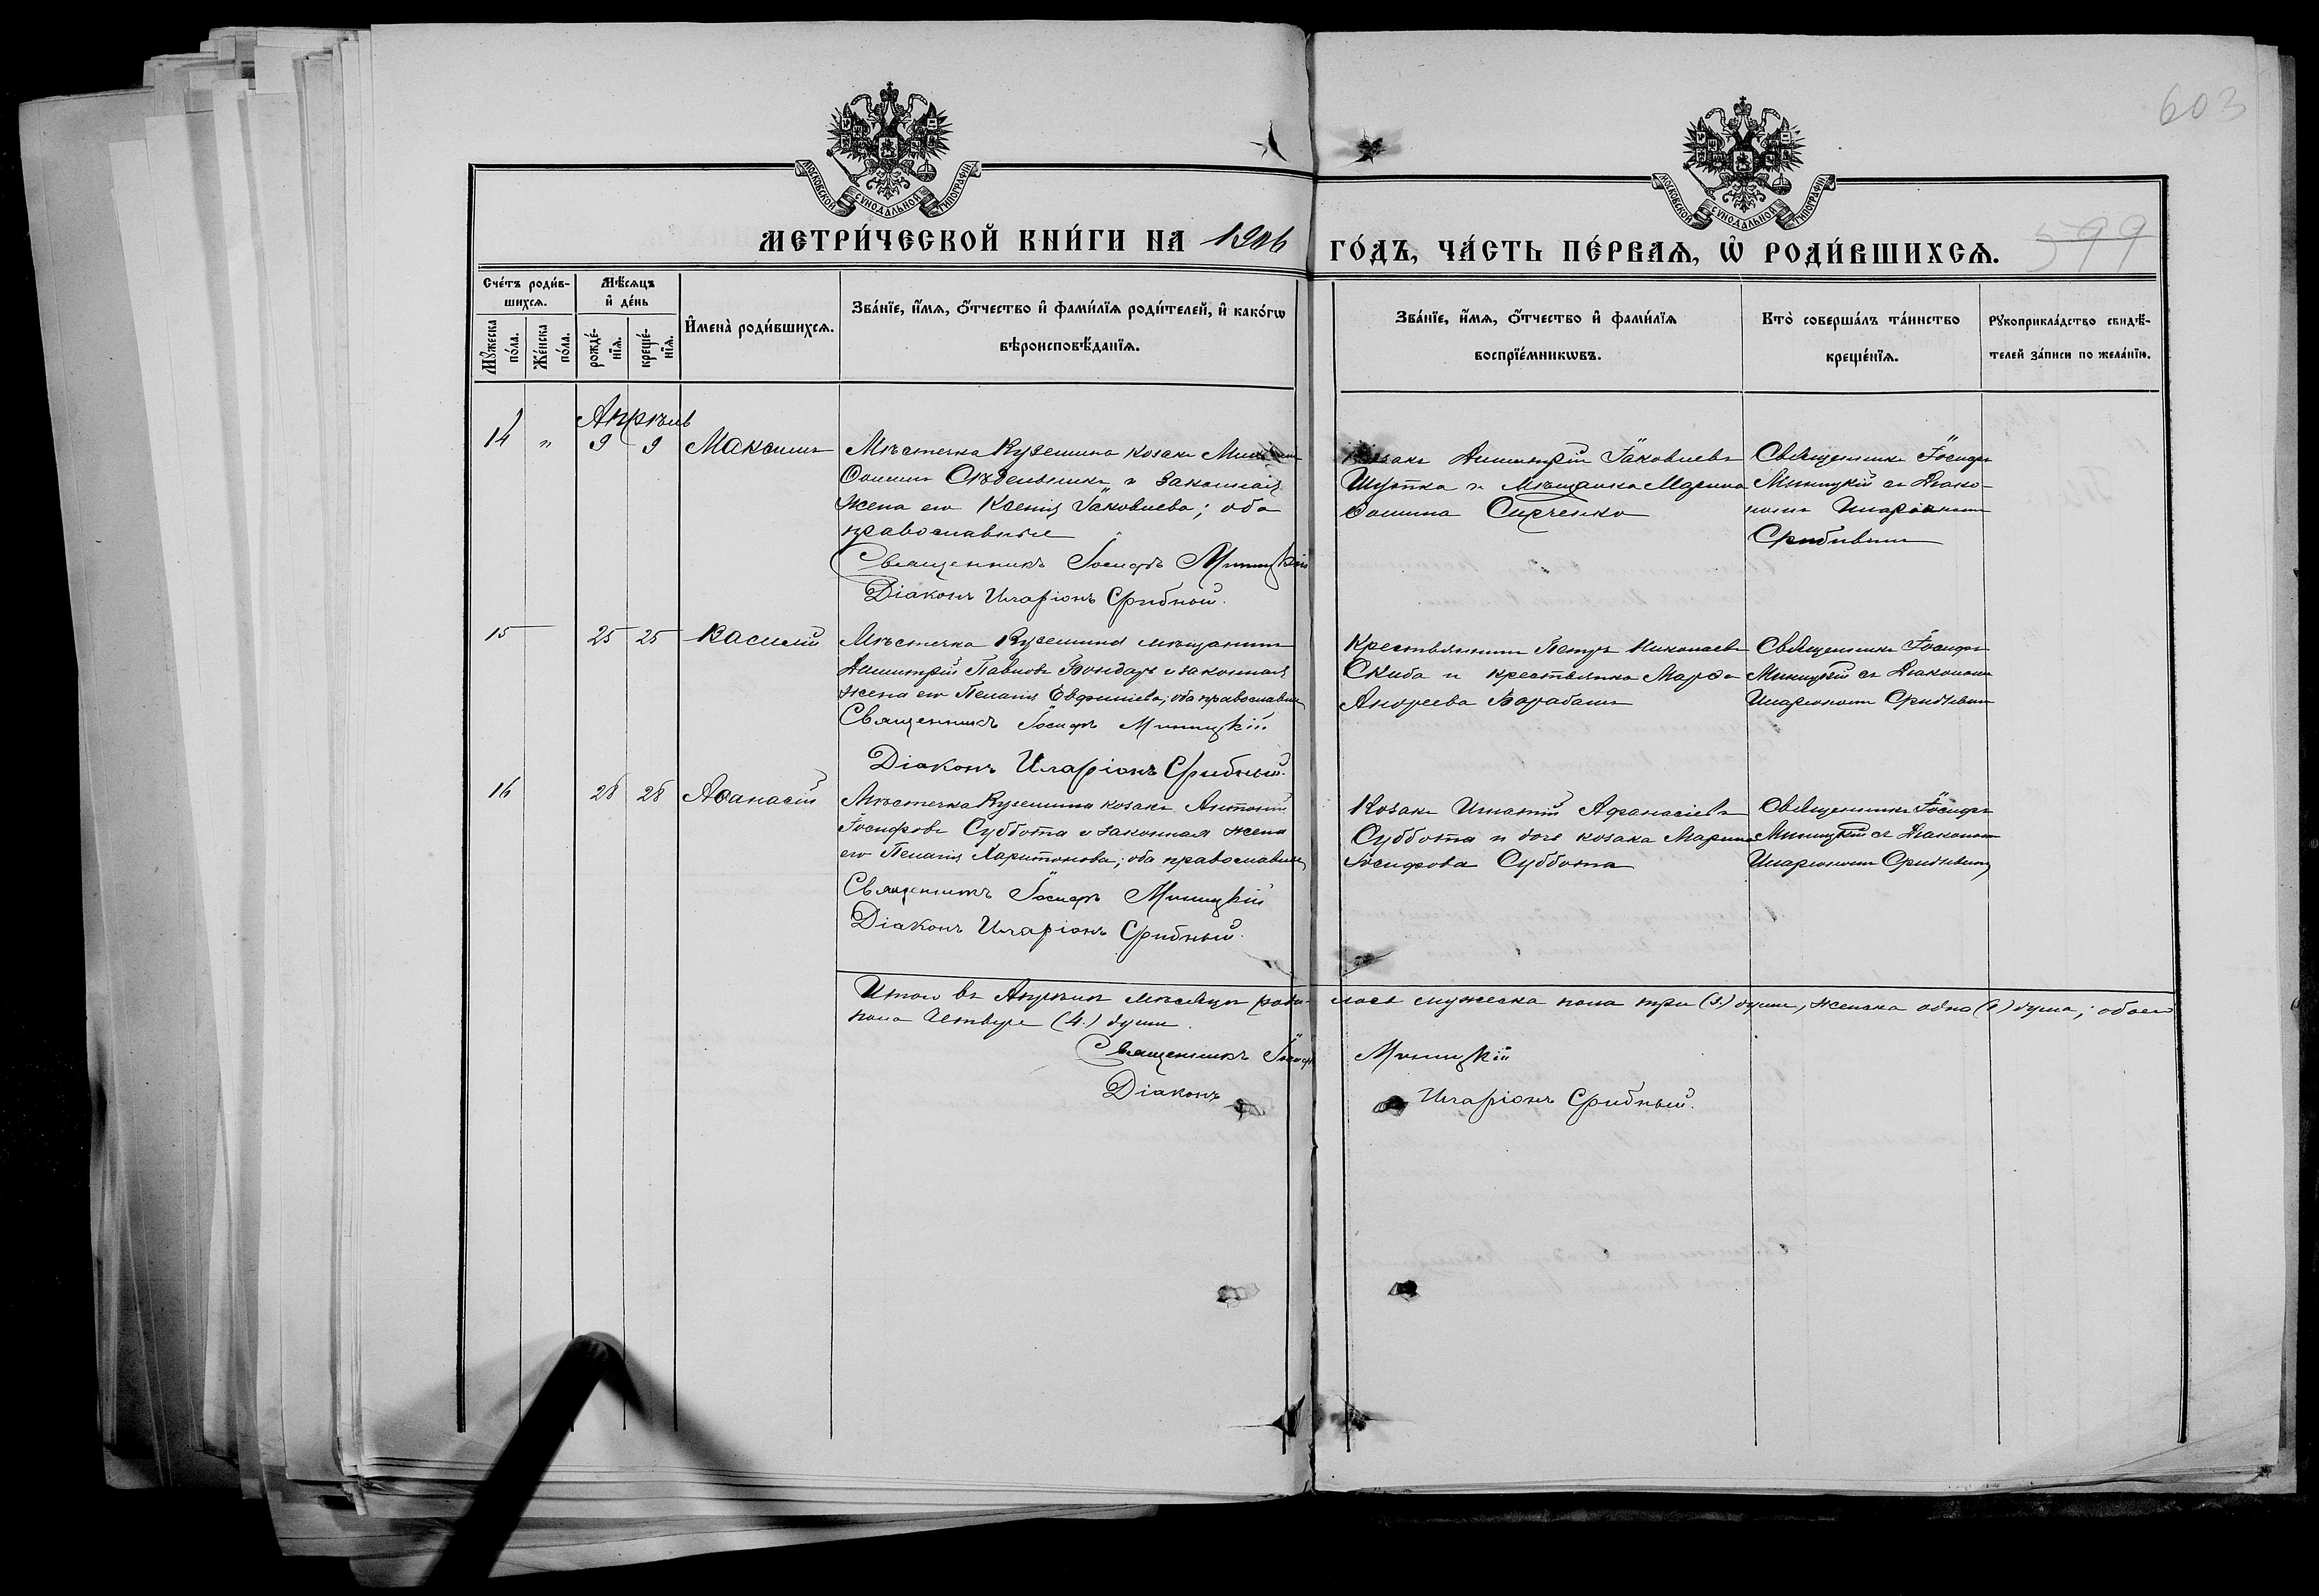 603
МОСКОВСКОЙ СУНОДАЛЬНОЙ ТИПОГРАФІИ
МОСКОВСКОЙ СУНОДАЛЬНОЙ ТИПОГРАФІИ
599
МЕТРИ́ЧЕСКОЙ КНИ́ГИ НА 1906 ГО́ДЪ, ЧА́СТЬ ПЕ́РВАѦ, Ѡ҆ РОДИ́ВШИХСѦ.
Сче́тъ роди́в-
шихсѧ.
Мꙋ́жеска по́ла.
Же́нска по́ла.
Мѣ́сѧцъ
и҆ де́нь
рожде́-
нїѧ.
креще́-
нїѧ.
И҆мена̀ роди́вшихсѧ.
Зва́нїе, и҆́мѧ, ѻ҆́тчество и҆ фами́лїѧ роди́телей, и҆ како́гѡ
вѣроисповѣ́данїѧ.
Зва́нїе, и҆́мѧ, ѻ҆́тчество и҆ фами́лїѧ
воспрїе́мникѡвъ.
Кто̀ соверша́лъ та́инство
креще́нїѧ.
Рꙋкоприкла́дство свидѣ́-
телей за́писи по жела́нїю.
Апрѣль
14 " 9 9 Максимъ
Мѣстечка Куземина козакъ
Ѳоминъ и законная
жена его Ксенія Іаковлева; оба
православные
Священникъ Іосифъ Миницкій
Діаконъ Иларіонъ Срибный.
Козакъ Димитрій Іаковлевъ
Шупка и мѣщанка Марина
Ѳомина Сирченко
Священникъ Іосифъ
Миницкій съ Діако-
номъ Иларіономъ
Срибнымъ
15 25 25 Василій
Мѣстечка Куземина мѣщанинъ
Димитрій Павловъ Бондарь и законная
жена его Пелагія Евфиміева; оба православные
Священникъ Іосифъ Миницкій
Діаконъ Иларіонъ Срибный.
Крестьянинъ Петръ Николаевъ
Скиба и крестьянка Марѳа
Андреева Барабашъ
Священникъ Іосифъ
Миницкій съ Діакономъ
Иларіономъ Срибнымъ
16 28 28 Аѳанасій
Мѣстечка Куземина козакъ Антоній
Іосифовъ Суббота и законная жена
его Пелагія Харитонова; оба православные
Священникъ Іосифъ Миницкій
Діаконъ Иларіонъ Срибный.
Козакъ Игнатій Афанасіевъ
Суббота и дочь козака Марина
Іосифова Суббота
Священникъ Іосифъ
Миницкій съ Діакономъ
Иларіономъ Срибнымъ
Итого въ Апрѣлѣ мѣсяцѣ роди- лось мужеска пола три (3.) души, женска одна (1) душа; обоего
пола четыре (4.) души.
Священникъ Іосифъ Миницкій
Діаконъ Иларіонъ Срибный.